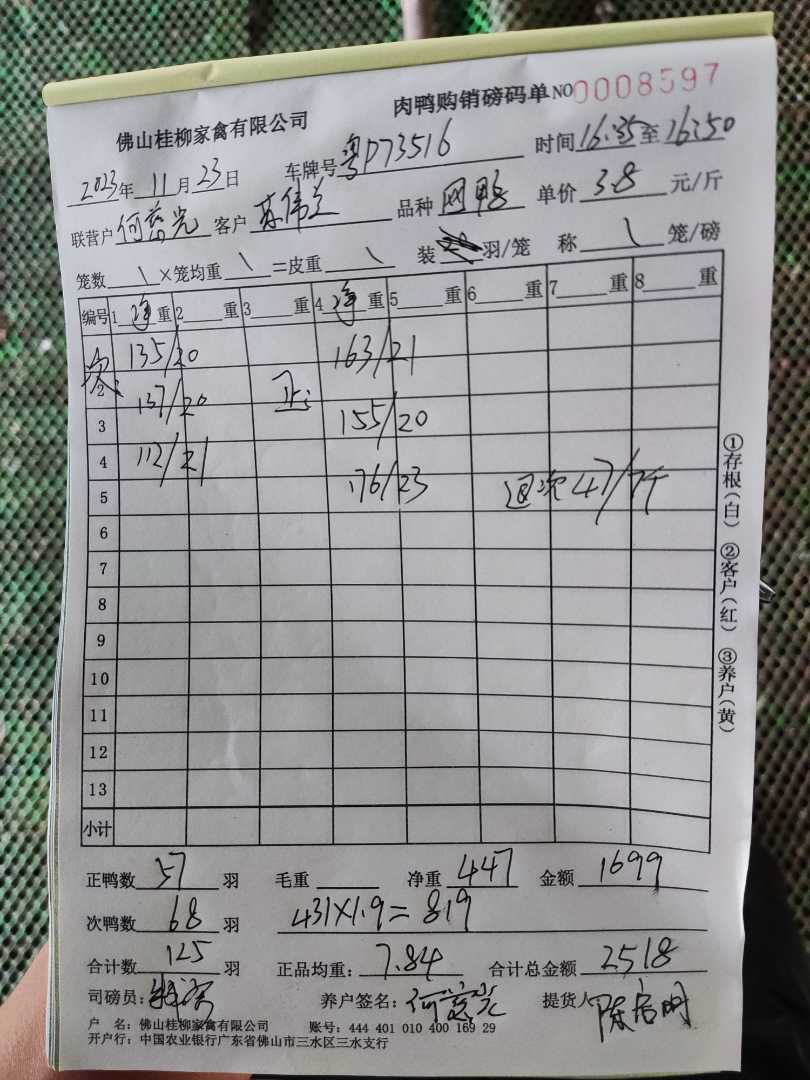 佛山桂柳家禽有限公司 肉鸭购销磅码单 NO 0008597
2023年11月23日 车牌号 粤P73516 时间 16:35 至 16:50
联营户 何慈光 客户 苏伟兰 品种 网鸭 单价 3.8 元/斤
笼数 \ ×笼均重 \ =皮重 \ 装 羽/笼 称 \ 笼/磅
编号 1 净 重 2 重 3 重 4 净 重 5 重 6 重 7 重 8 重
135/20 163/21
2 137/20 正:
3 155/20
4 112/21
5 176/23 退次47/7斤
6
7
8
9
10
11
12
13
小计
正鸭数 57 羽 毛重 净重 447 金额 1699
次鸭数 68 羽 431×1.9=819
合计数 125 羽 正品均重: 7.84 合计总金额 2518
司磅员: 养户签名: 何慈光 提货人 陈启明
户 名: 佛山桂柳家禽有限公司 账号: 444 401 010 400 169 29
开户行: 中国农业银行广东省佛山市三水区三水支行
①存根(白) ②客户(红) ③养户(黄)